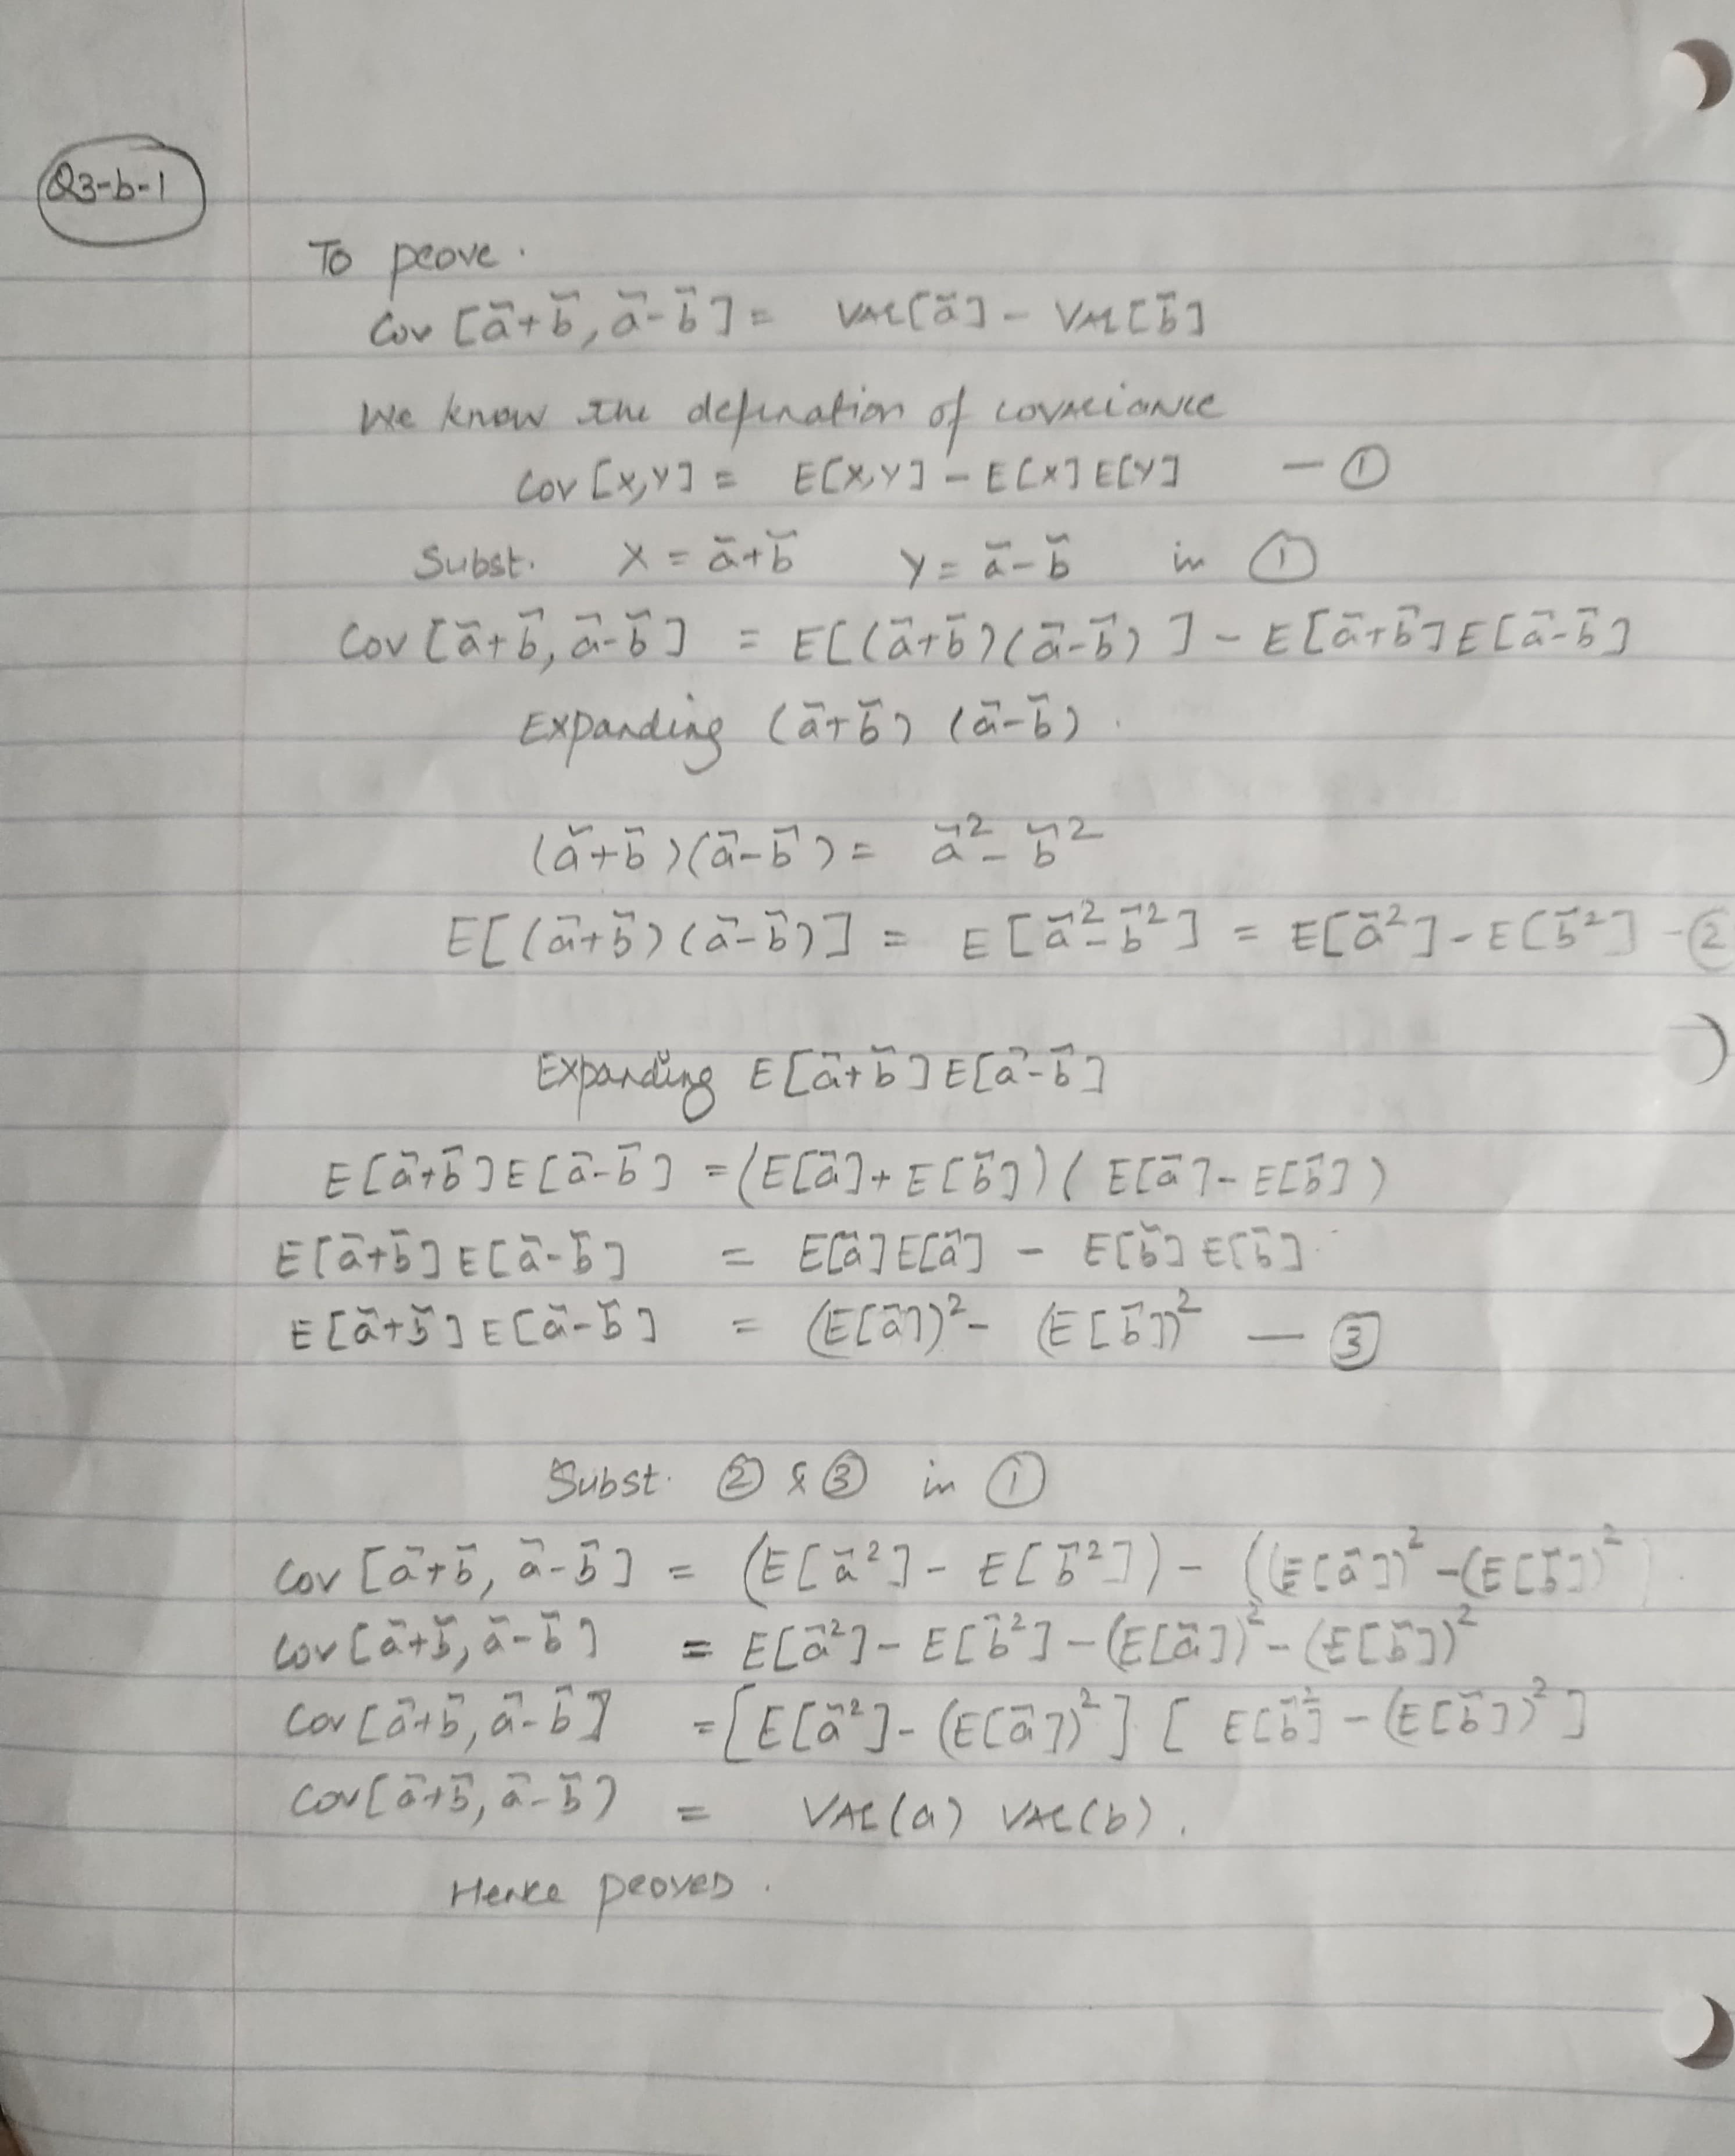 Q3-b-1
To prove.
Cov [ã+b̃, ã-b̃] = Var[ã] - Var[b̃]
We know the defination of covariance
Cov [X,Y] = E[X,Y] - E[X] E[Y] — ①
Subst. X = ã+b̃ Y = ã-b̃ in ①
Cov [ã+b̃, ã-b̃] = E[(ã+b̃)(ã-b̃)] - E[ã+b̃] E[ã-b̃]
Expanding (ã+b̃) (ã-b̃).
(ã+b̃)(ã-b̃) = ã² - b̃²
E[(ã+b̃)(ã-b̃)] = E[ã² - b̃²] = E[ã²] - E[b̃²] - ②
Expanding E[ã+b̃] E[ã-b̃]
E[ã+b̃] E[ã-b̃] = (E[ã] + E[b̃]) (E[ã] - E[b̃])
E[ã+b̃] E[ã-b̃] = E[ã] E[ã] - E[b̃] E[b̃]
E[ã+b̃] E[ã-b̃] = (E[ã])² - (E[b̃])² — ③
Subst. ② & ③ in ①
Cov [ã+b̃, ã-b̃] = (E[ã²] - E[b̃²]) - ((E[ã])² - (E[b̃])²)
Cov [ã+b̃, ã-b̃] = E[ã²] - E[b̃²] - (E[ã])² - (E[b̃])²
Cov [ã+b̃, ã-b̃] = [E[ã²] - (E[ã])²] [E[b̃²] - (E[b̃])²]
Cov [ã+b̃, ã-b̃) = Var(a) Var(b).
Hence proved.